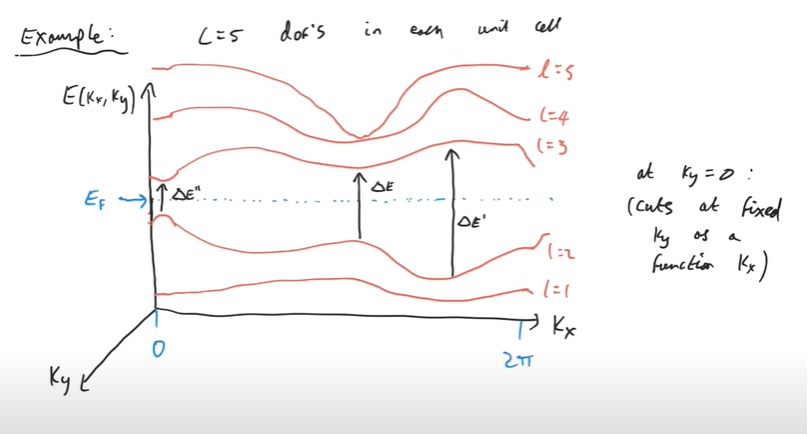 Example: L=5 dof's in each unit cell
E(Kx,Ky)
l=5
l=4
l=3
EF
ΔE"
ΔE
ΔE'
l=2
l=1
0
2π
Kx
Ky
at Ky=0:
(cuts at fixed
Ky as a
function Kx)